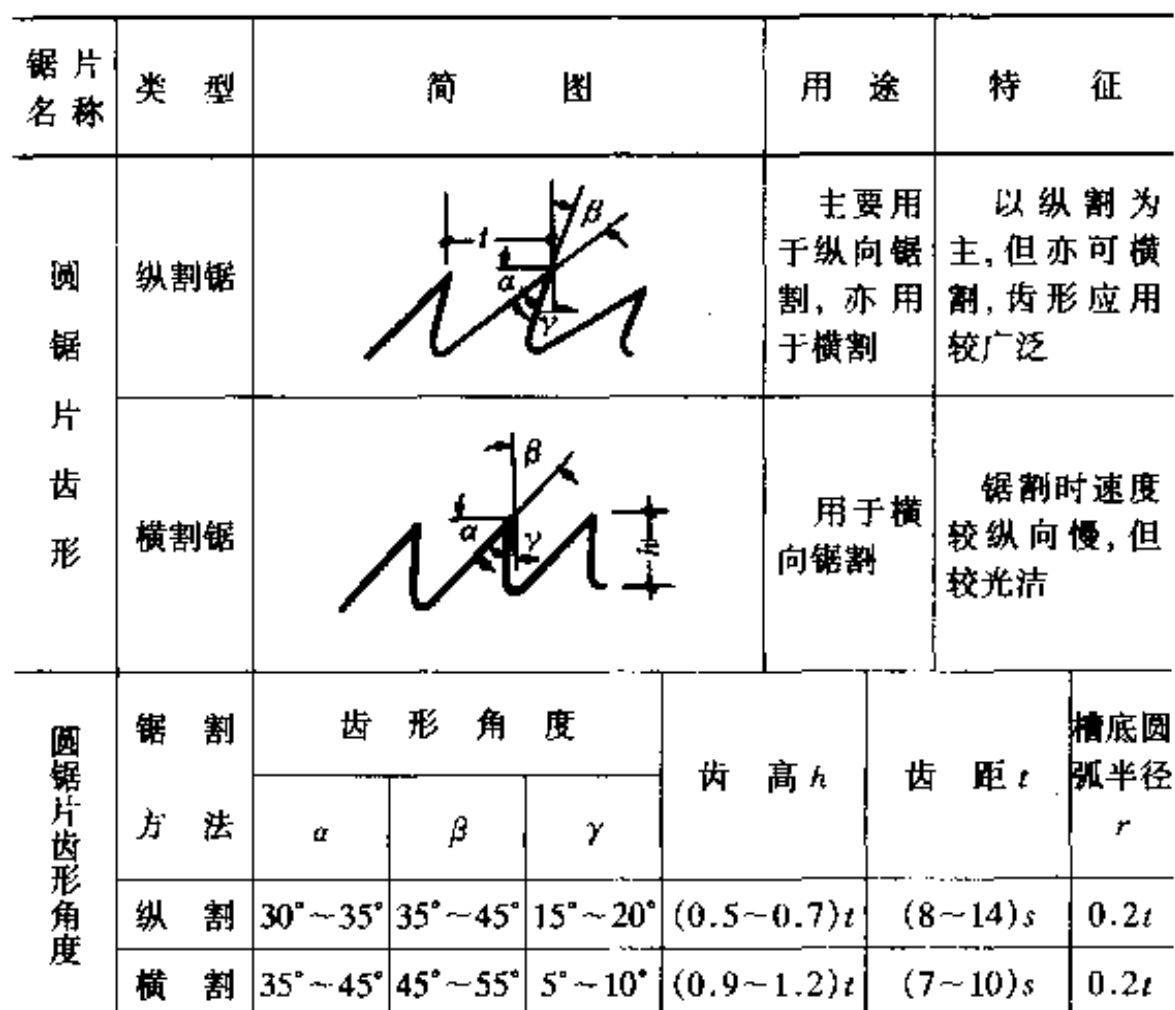 锯片名称 类型 简图 用途 特征
圆锯片齿形
纵割锯
t β
α
γ
主要用
于纵向锯
割,亦用
于横割
以纵割为
主,但亦可横
割,齿形应用
较广泛
横割锯
β
α γ h
用于横
向锯割
锯割时速度
较纵向慢,但
较光洁
圆锯片齿形角度
锯割方法 齿形角度 齿高h 齿距t 槽底圆弧半径r
α β γ
纵割 30°~35° 35°~45° 15°~20° (0.5~0.7)t (8~14)s 0.2t
横割 35°~45° 45°~55° 5°~10° (0.9~1.2)t (7~10)s 0.2t